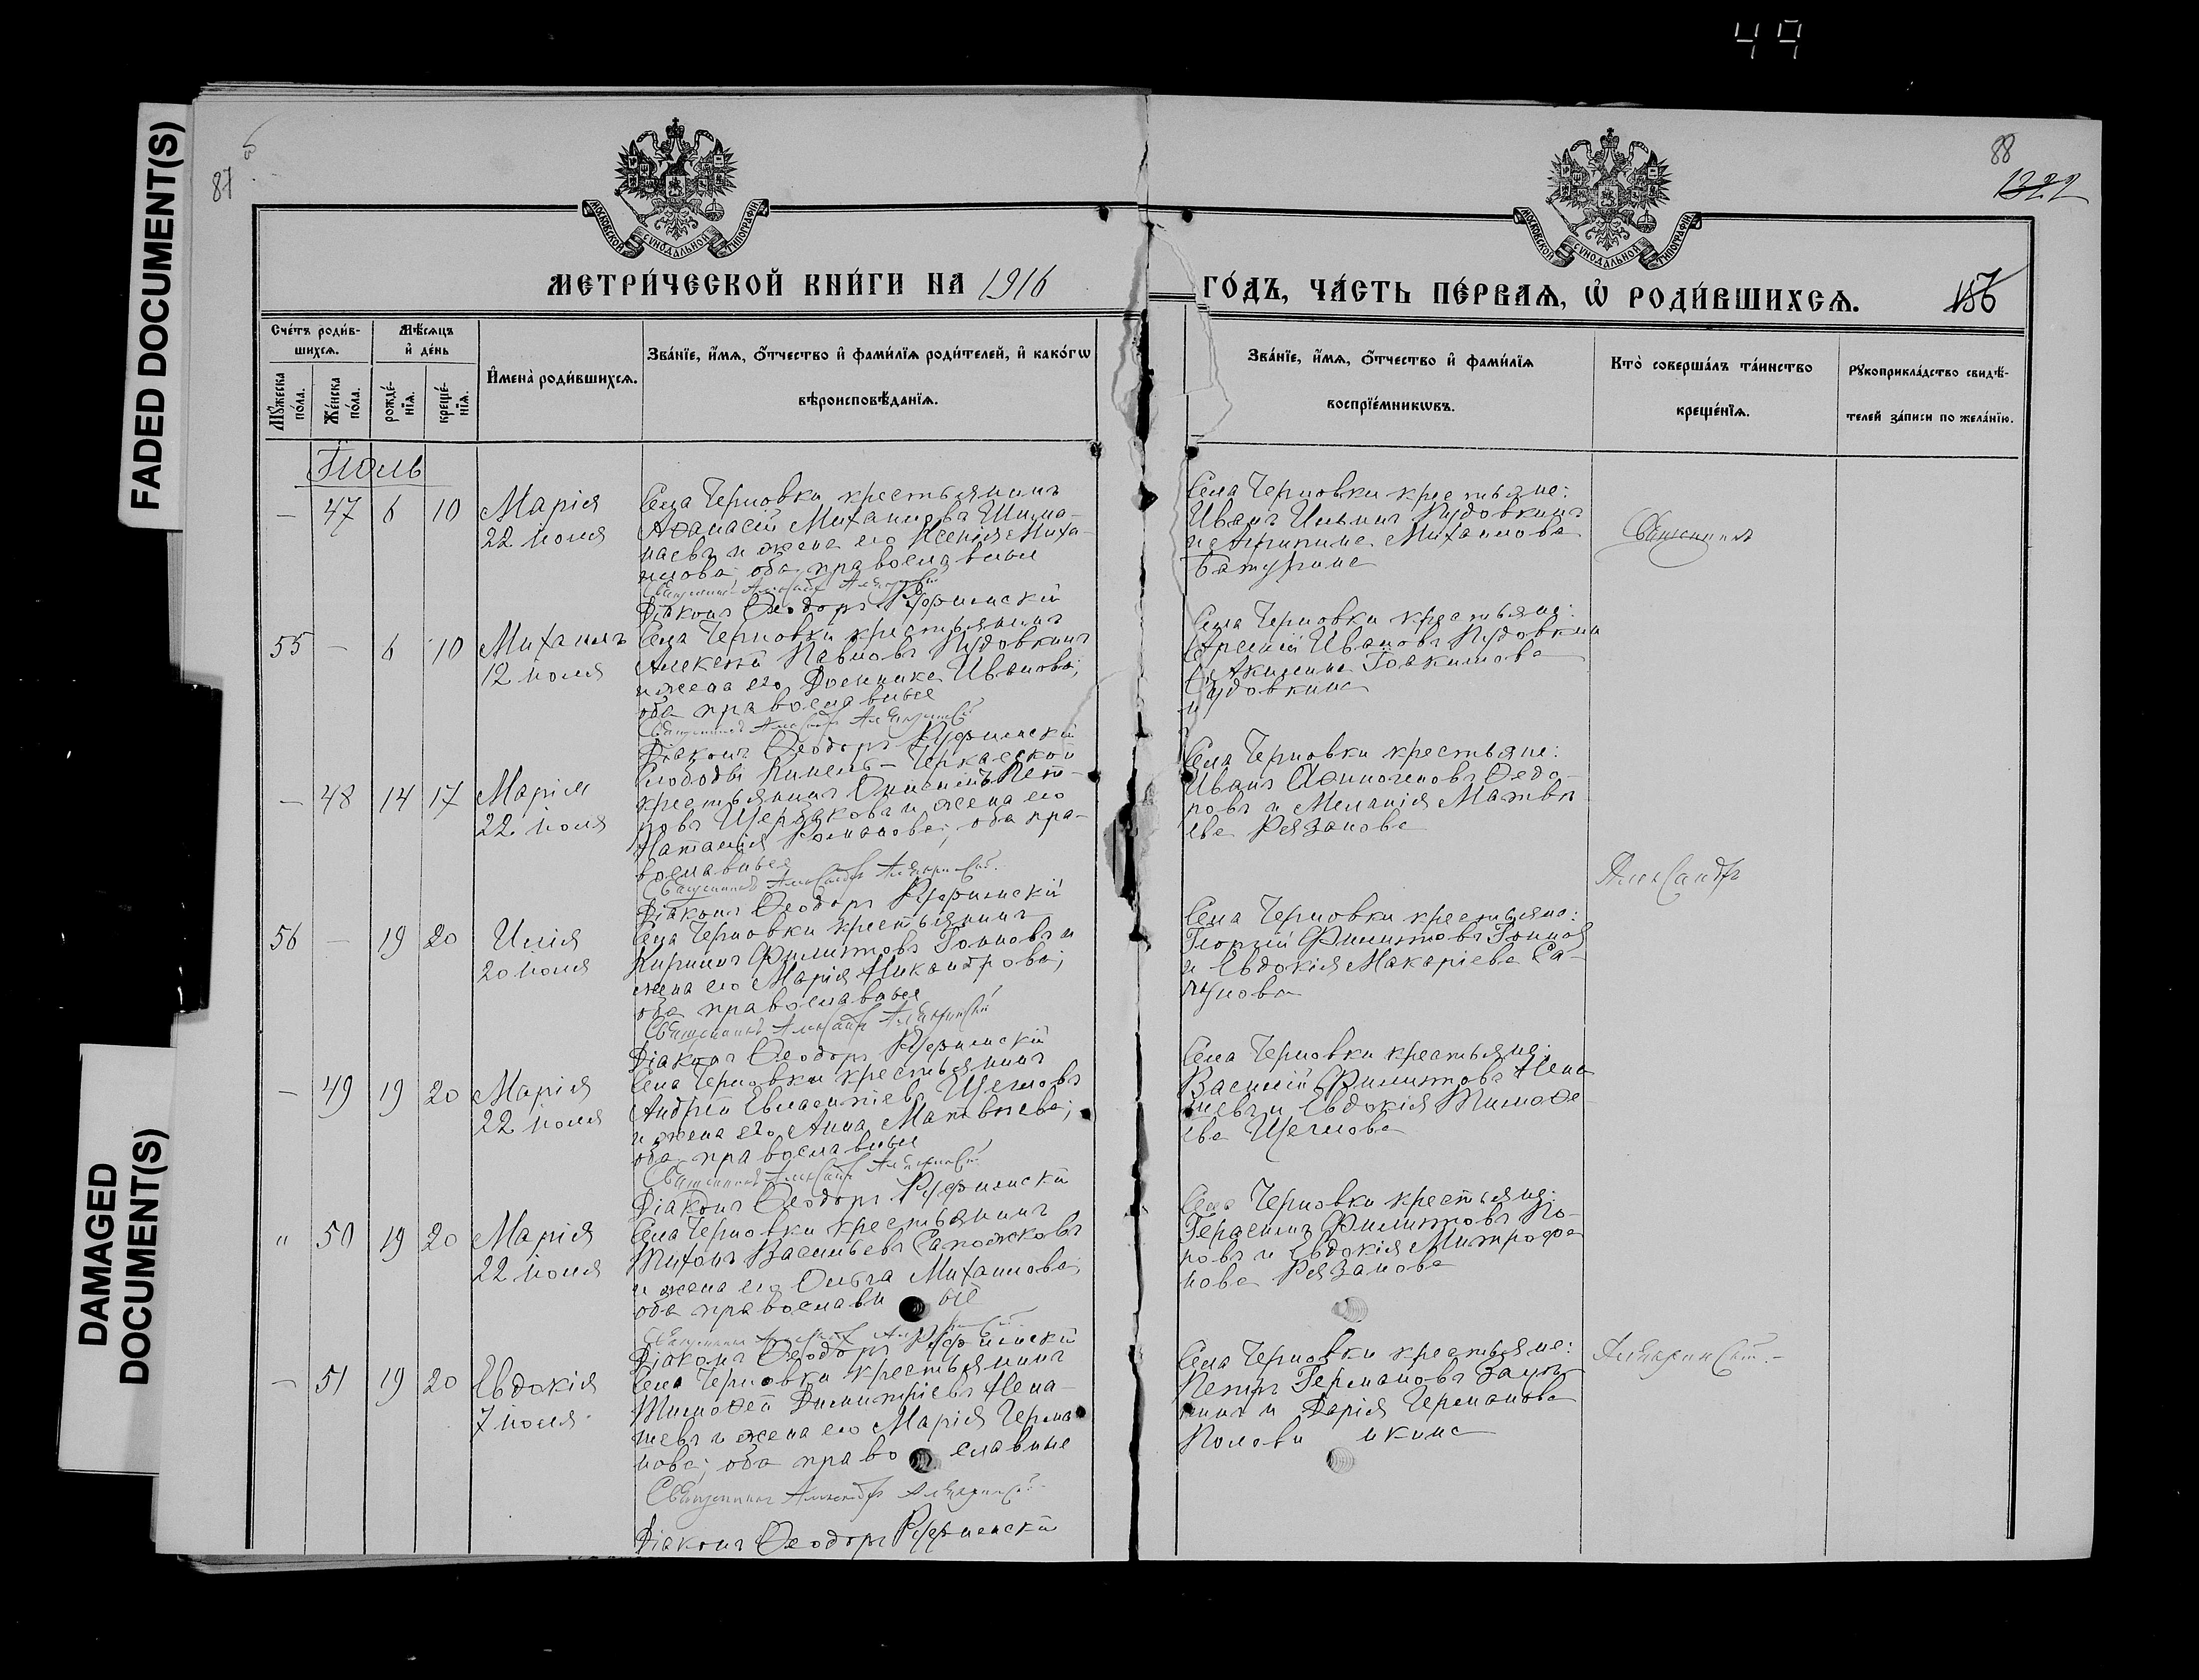 49
FADED DOCUMENT(S)
DAMAGED
DOCUMENT(S)
87
88
1322
МОСКОВСКОЙ СѴНОДАЛЬНОЙ ТИПОГРАФІИ
МОСКОВСКОЙ СѴНОДАЛЬНОЙ ТИПОГРАФІИ
МЕТРИ́ЧЕСКОЙ КНИ́ГИ НА 1916
ГО́ДЪ, ЧА́СТЬ ПЕ́РВАѦ, Ѡ҆ РОДИ́ВШИХСѦ.
156
Сче́тъ роди́в-
шихсѧ.
Мѣ́сѧцъ
и҆ де́нь
Мꙋ́жеска
по́ла.
Же́нска
по́ла.
рожде́-
нїѧ.
креще́-
нїѧ.
И҆мена̀ роди́вшихсѧ.
Зва́нїе, и҆́мѧ, ѻ҆́тчество и҆ фами́лїѧ роди́телей, и҆ како́гѡ
вѣроисповѣ́данїѧ.
Зва́нїе, и҆́мѧ, ѻ҆́тчество и҆ фами́лїѧ
воспрїе́мникѡвъ.
Кто̀ соверша́лъ та́инство
креще́нїѧ.
Рꙋкоприкла́дство свидѣ́-
телей за́писи по жела́нїю.
Іюль
— 47 6 10 Марія
22 іюля
Села Черновки крестьянинъ
Аѳанасій Михаиловъ Шиша-
наевъ и жена его Ксенія Миха-
илова; оба православные
Священникъ Александръ
Діаконъ Ѳеодоръ Руфимскій
Села Черновки крестьяне:
Иванъ Ильинъ Кудовкинъ
и Агрипина Михаилова
Батурина
Священникъ
55 — 6 10 Михаилъ
12 іюля
Села Черновки крестьянинъ
Алексѣй Павловъ Кудовкинъ
и жена его Домника Иванова;
оба православные
Священникъ Александръ
Діаконъ Ѳеодоръ Руфимскій
Села Черновки крестьяне:
Арсеній Ивановъ Кудовкин
и Акилина Іоакимова
Кудовкина
— 48 14 17 Марія
22 іюля
Слободы Кинель-Черкасской
крестьянинъ Онисимъ Пет-
ровъ Щербаковъ и жена его
Наталія Романова; оба пра-
вославные
Священникъ Александръ
Діаконъ Ѳеодоръ Руфимскій
Села Черновки крестьяне:
Иванъ Аѳиногеновъ Ѳедо-
ровъ и Меланія Матвѣ-
ева Рязанова
Александръ
56 — 19 20 Илія
20 іюля
Села Черновки крестьянинъ
Кириллъ Филиповъ Поповъ и
жена его Марія Никандрова;
оба православные
Священникъ Александръ
Діаконъ Ѳеодоръ Руфимскій
Села Черновки крестьяне:
Георгій Филиповъ Попов
и Евдокія Макаріева Са-
пунова
— 49 19 20 Марія
22 іюля
Села Черновки крестьянинъ
Андрей Евлампіевъ Щегловъ
и жена его Анна Матвѣева;
оба православные
Священникъ Александръ
Діаконъ Ѳеодоръ Руфимскій
Села Черновки крестьяне:
Василій Филиповъ Нена-
шевъ и Евдокія Тимоѳе-
ева Щеглова
" 50 19 20 Марія
22 іюля
Села Черновки крестьянинъ
Тихонъ Васильевъ Сапожковъ
и жена его Ольга Михаилова;
оба православные
Священникъ Александръ
Діаконъ Ѳеодоръ Руфимскій
Села Черновки крестьяне:
Герасимъ Филиповъ По-
повъ и Евдокія Митрофа-
нова Рязанова
— 51 19 20 Евдокія
7 іюля
Села Черновки крестьянинъ
Тимоѳей Димитріевъ Нена-
шевъ и жена его Марія Герма-
нова; оба православные
Священникъ Александръ
Діаконъ Ѳеодоръ Руфимскій
Села Черновки крестьяне:
Петръ Германовъ
и Дарія Германова
Половинкина